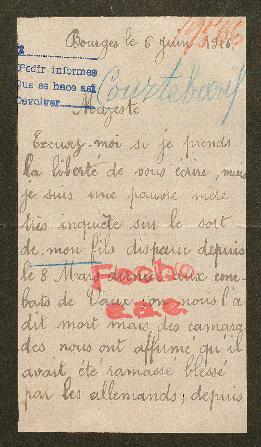 Bourges le 6 juin 1916.
Pedir informes
Que se hace así
Devolver
Courteboeuf
Majesté
Excusez-moi si je prends
la liberté de vous écrire, mais
je suis une pauvre mère
très inquiète sur le sort
de mon fils disparu depuis
le 8 Mars dernier aux com-
bats de Vaux on nous l'a
dit mort mais des camara
des nous ont affirmé qu'il
avait été ramassé blessé
par les allemands; depuis
Fecho